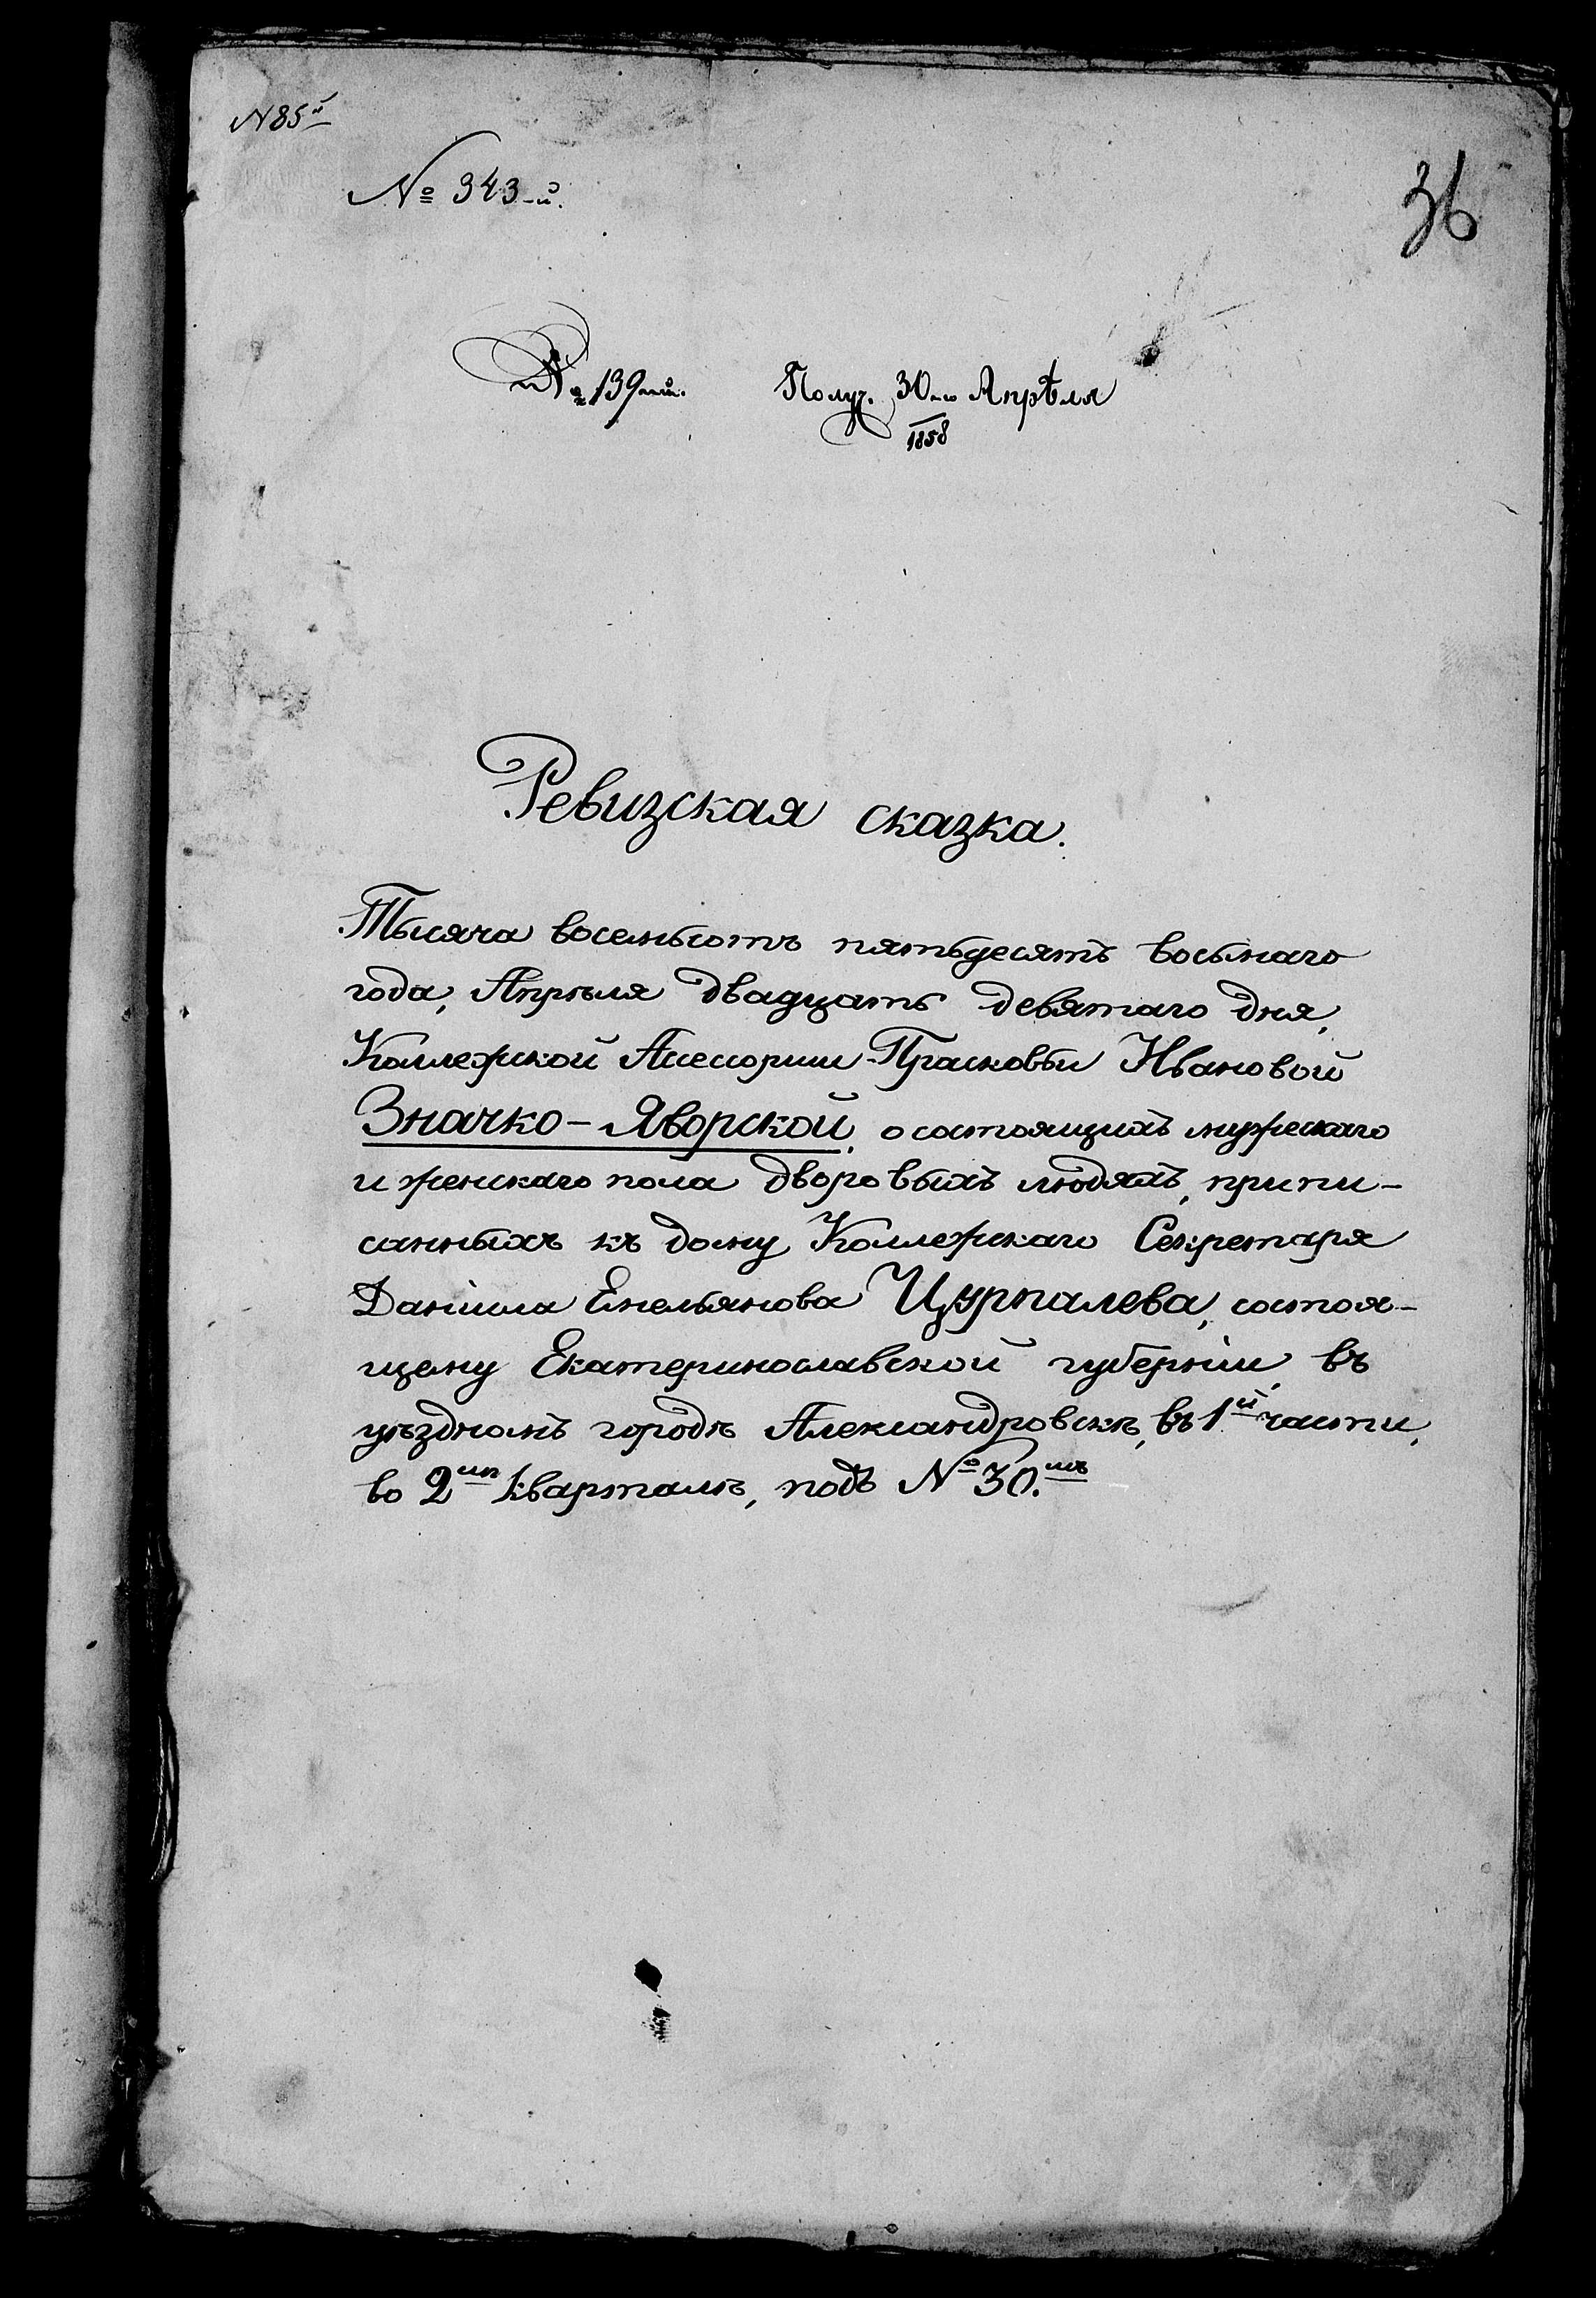 N 85й
№ 343-й.
36
№ 139-й. Получ. 30-го Апрѣля
1858
Ревизская сказка.
Тысяча восемьсотъ пятьдесятъ восьмаго
года, Апрѣля двадцать девятаго дня,
Коллежской Асессорши Прасковьи Ивановой
Значко-Яворской, о состоящихъ мужескаго
и женскаго пола дворовыхъ людяхъ, припи-
санныхъ къ дому Коллежскаго Секретаря
Даніила Емельянова Цурпалева, состоя-
щему Екатеринославской губерніи, въ
уѣздномъ городѣ Александровскѣ, въ 1й части,
во 2мъ кварталѣ, подъ № 30.мъ